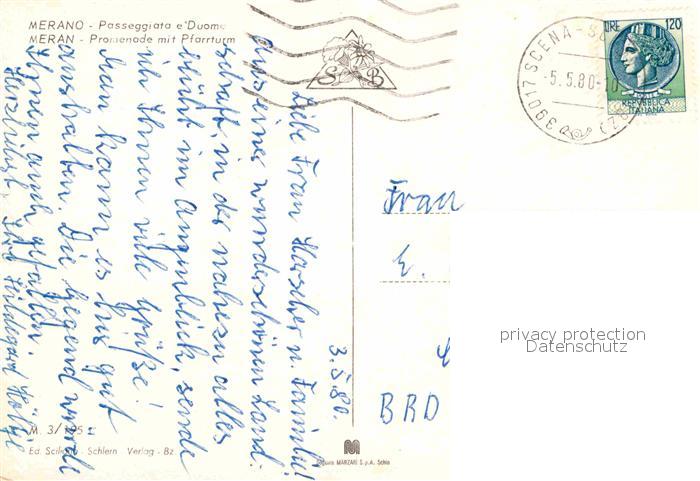 MERANO - Passeggiata e Duomo
MERAN - Promenade mit Pfarrturm
S B
39017 SCENA-S
-5.5.80-10
(BZ)
LIRE 120
REPVBBLICA
ITALIANA
3.5.80.
Liebe Frau u. Familie!
Aus einer wunderschönen Land-
schaft in der nahezu alles
blüht im Augenblick, sende
ich Ihnen viele Grüße!
Man kann es hier gut
aushalten. Die Gegend würde
Ihnen auch gefallen.
Herzlichst Ihre Hildegard
Frau
E.
BRD
M. 3/195 c
Ed. Sciliar - Schlern Verlag - Bz
M
MARZARI S.p.A. Schio
privacy protection
Datenschutz